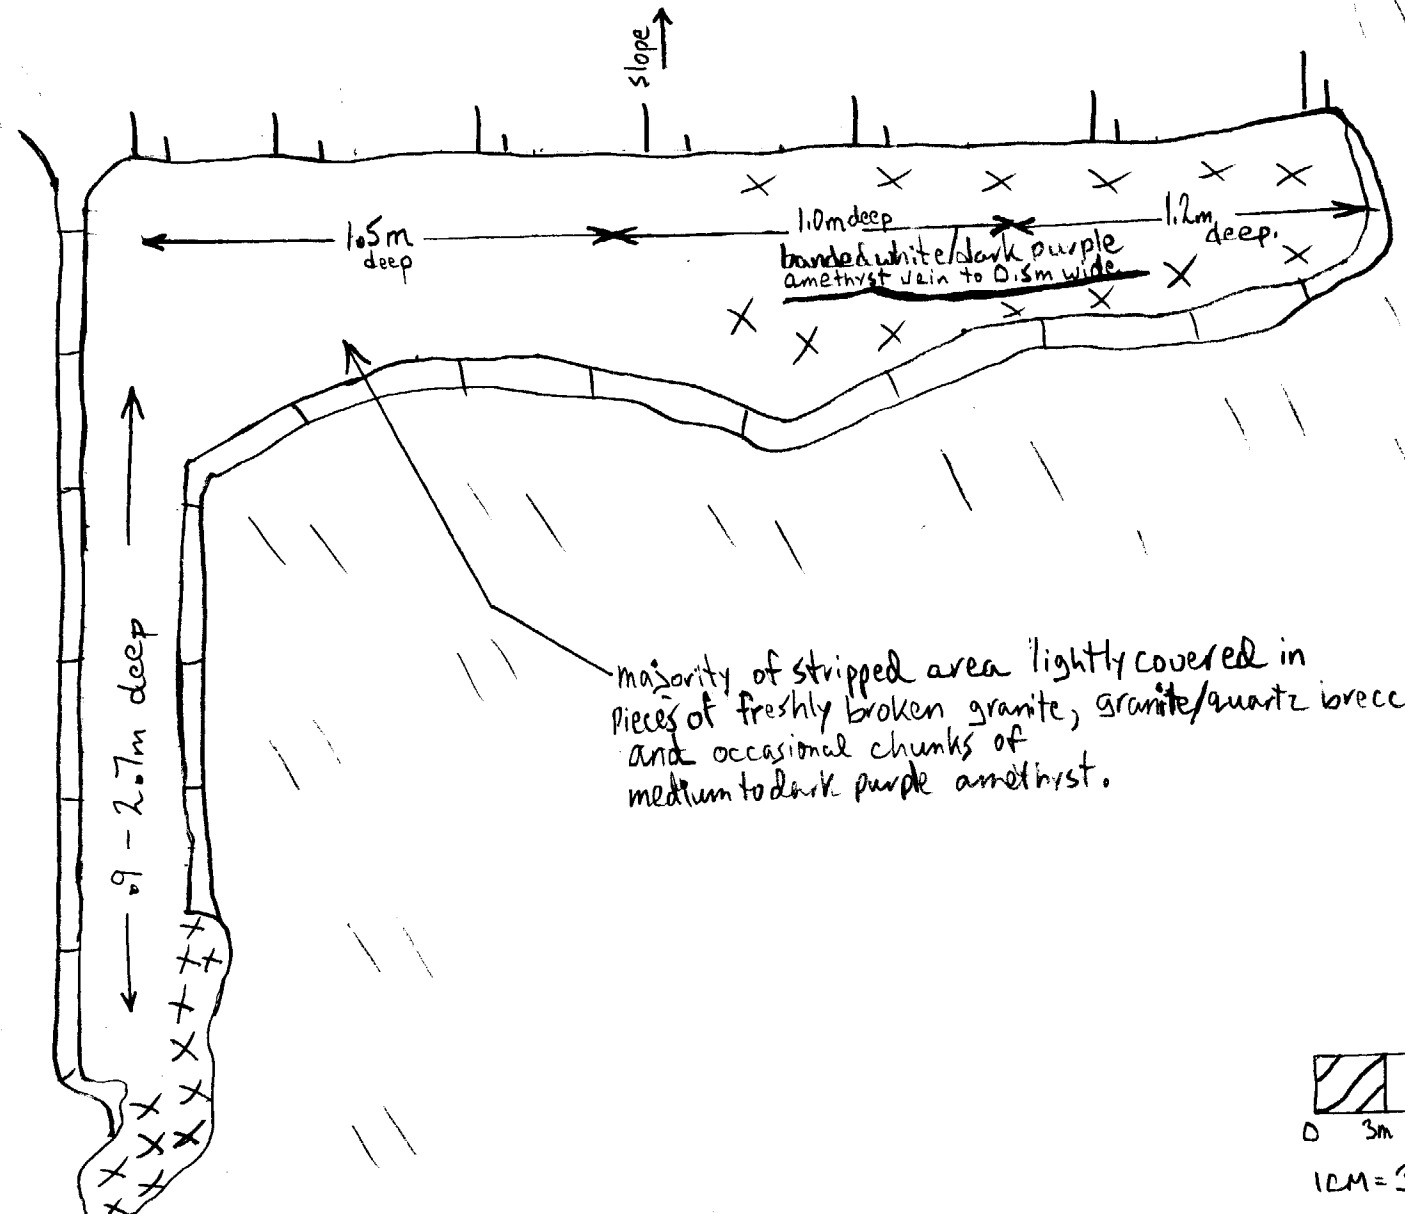 slope
1.5m
deep
1.0m deep
1.2m
deep.
banded white/dark purple
amethyst vein to 0.5m wide
.9 - 2.7m deep
majority of stripped area lightly covered in
pieces of freshly broken granite, granite/quartz brecc
and occasional chunks of
medium to dark purple amethyst.
0 3m
1CM = 3